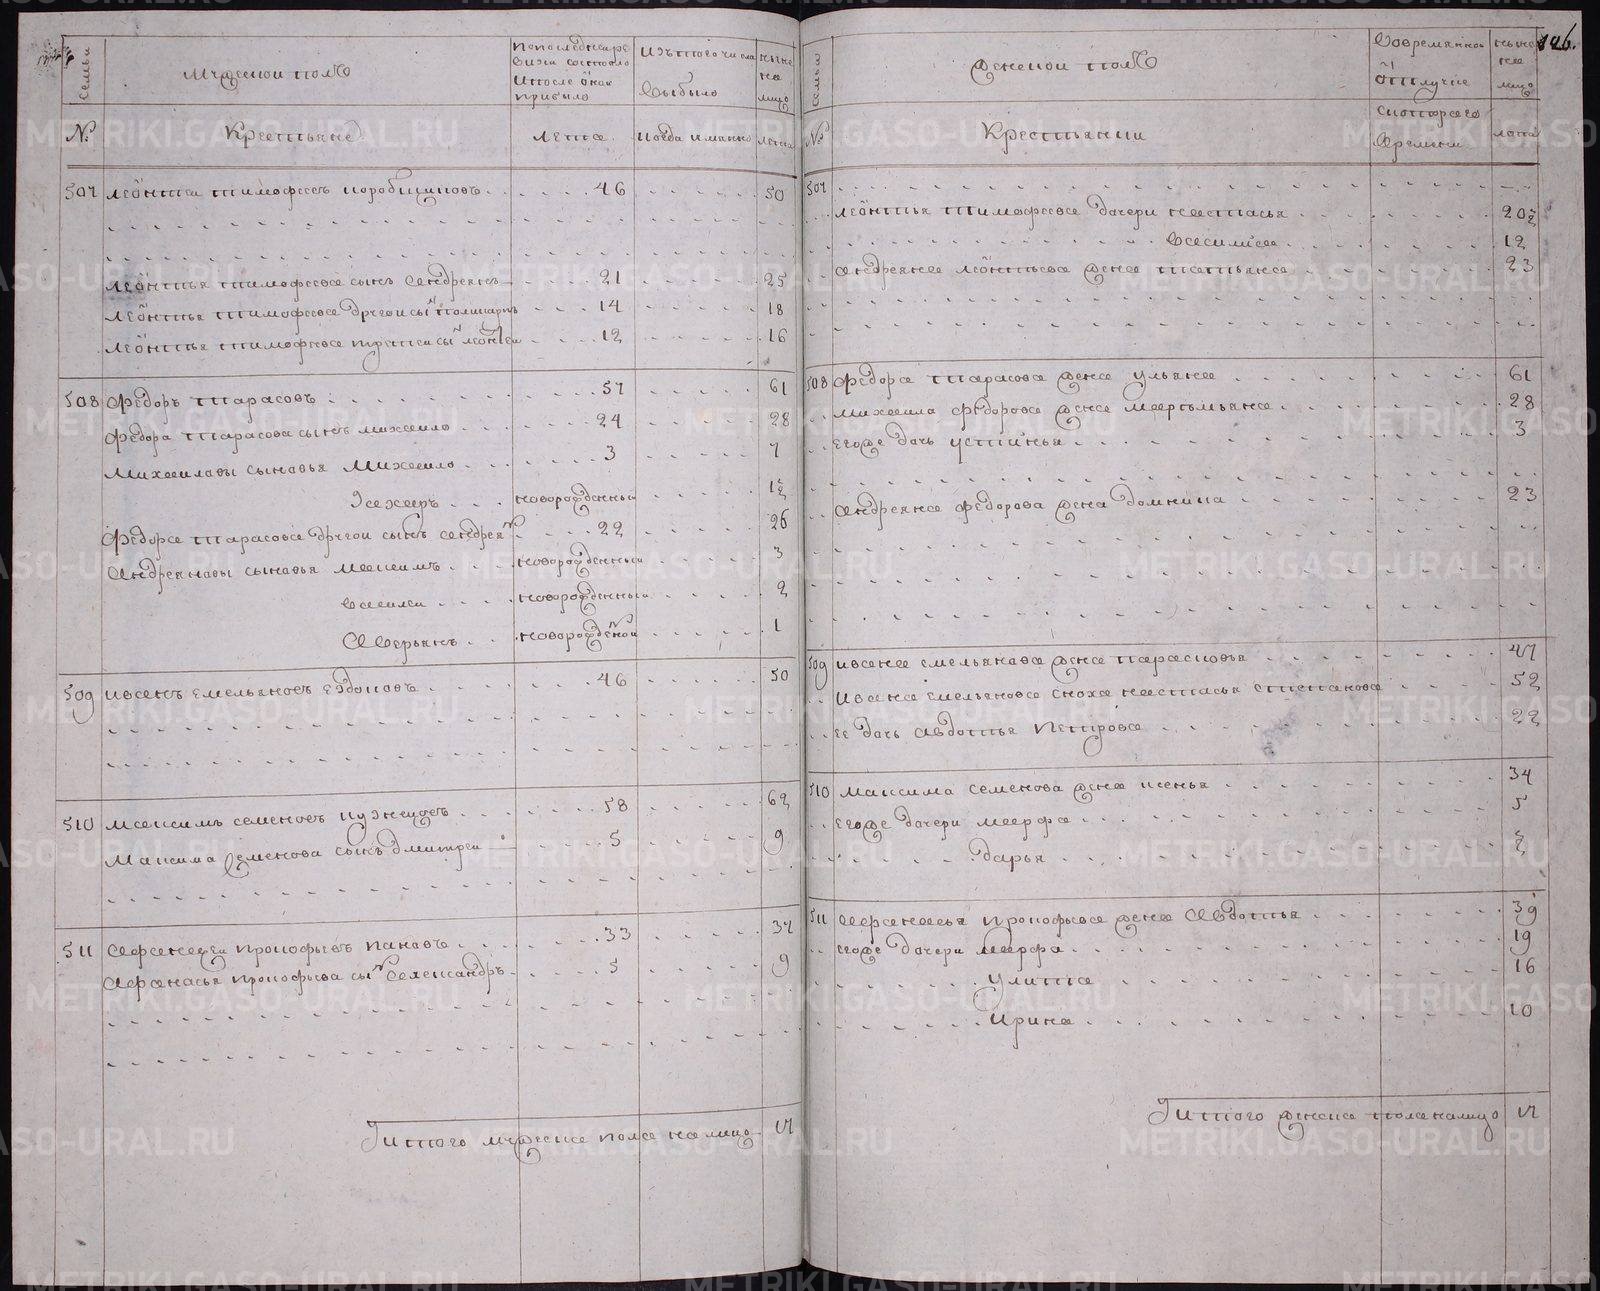 семьи
Мужской полъ
По последней ре
визии состояло
и после оной
прибыло
Изъ того числа
выбыло
ныне
на
лицо
№
Крестьяне
лета
когда и именно
лета
507 Леонтей Тимофеевъ Коробщиковъ 46 50
Леонтья Тимофеева сынъ Андреянъ 21 25
Леонтья Тимофеева другой сынъ Поликарпъ 14 18
Леонтья Тимофеева третей сынъ Леонтей 12 16
508 Федоръ Тарасовъ 57 61
Федора Тарасова сынъ Михайло 24 28
Михайлавы сынавья Михайло 3 7
Захаръ новорожденный 1½
Федора Тарасова другой сынъ Андреянъ 22 26
Андреянавы сынавья Максимъ новорожденный 3
Василей новорожденный 2
Аверьянъ новорожденой 1
509 Иванъ Емельяновъ Ездоковъ 46 50
510 Максимъ Семеновъ Кузнецовъ 58 62
Максима Семенова сынъ Дмитрей 5 9
511 Афанасей Прокофьевъ Панавъ 33 37
Афонасья Прокофьева сынъ Александръ 5 9
Итого мужска пола на лицо 17
126.
семьи
Женской полъ
Во временной
отлучке
ныне
на
лицо
№
Крестьянки
с которого
времени
лета
507
Леонтья Тимофеева дочери Настасья 20½
Василиса 12
Андреяна Леонтьева жена Татьяна 23
508 Федора Тарасова жена Ульяна 61
Михайла Федорова жена Марьмьяна 28
Егоже дочь Устинья 3
Андреяна Федорова жена Домника 23
509 Ивана Емельянава жена Парасковья 47
Ивана Емельянова сноха Настасья Степанова 52
Ее дочь Авдотья Петрова 22
510 Максима Семенова жена Ксенья 34
Егоже дочери Марфа 5
Дарья ½
511 Афанасья Прокофьева жена Авдотья 39
Егоже дочери Марфа 19
Улита 16
Ирина 10
Итого женска пола на лицо 17
METRIKI.GASO-URAL.RU